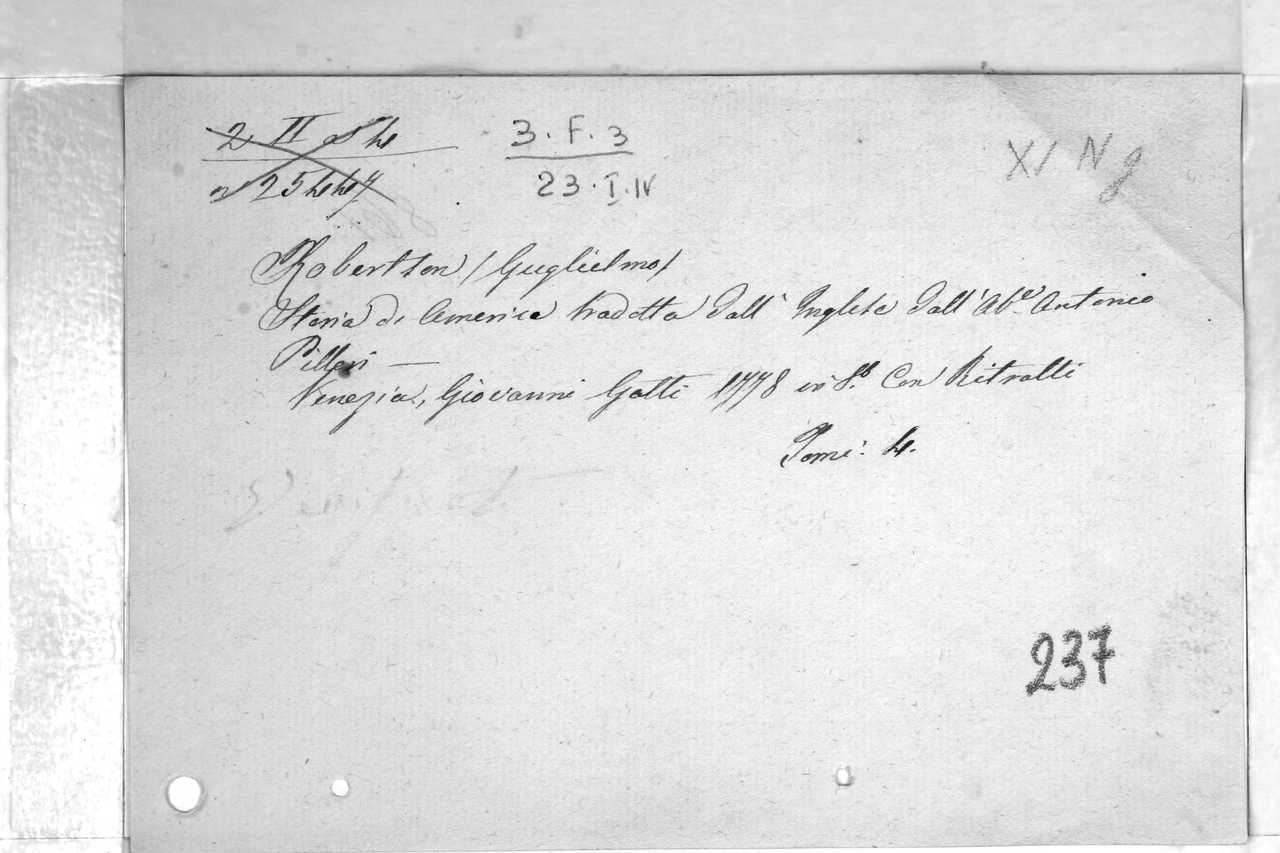 3. F. 3
23. I. IV
XI N g
Robertson / Guglielmo /
Storia di America tradotta Dall' Inglese Dall' Ab.e Antonio
Pilleri —
Venezia, Giovanni Gatti 1778 in 8.° Con Ritratti
Tomi: 4.
237